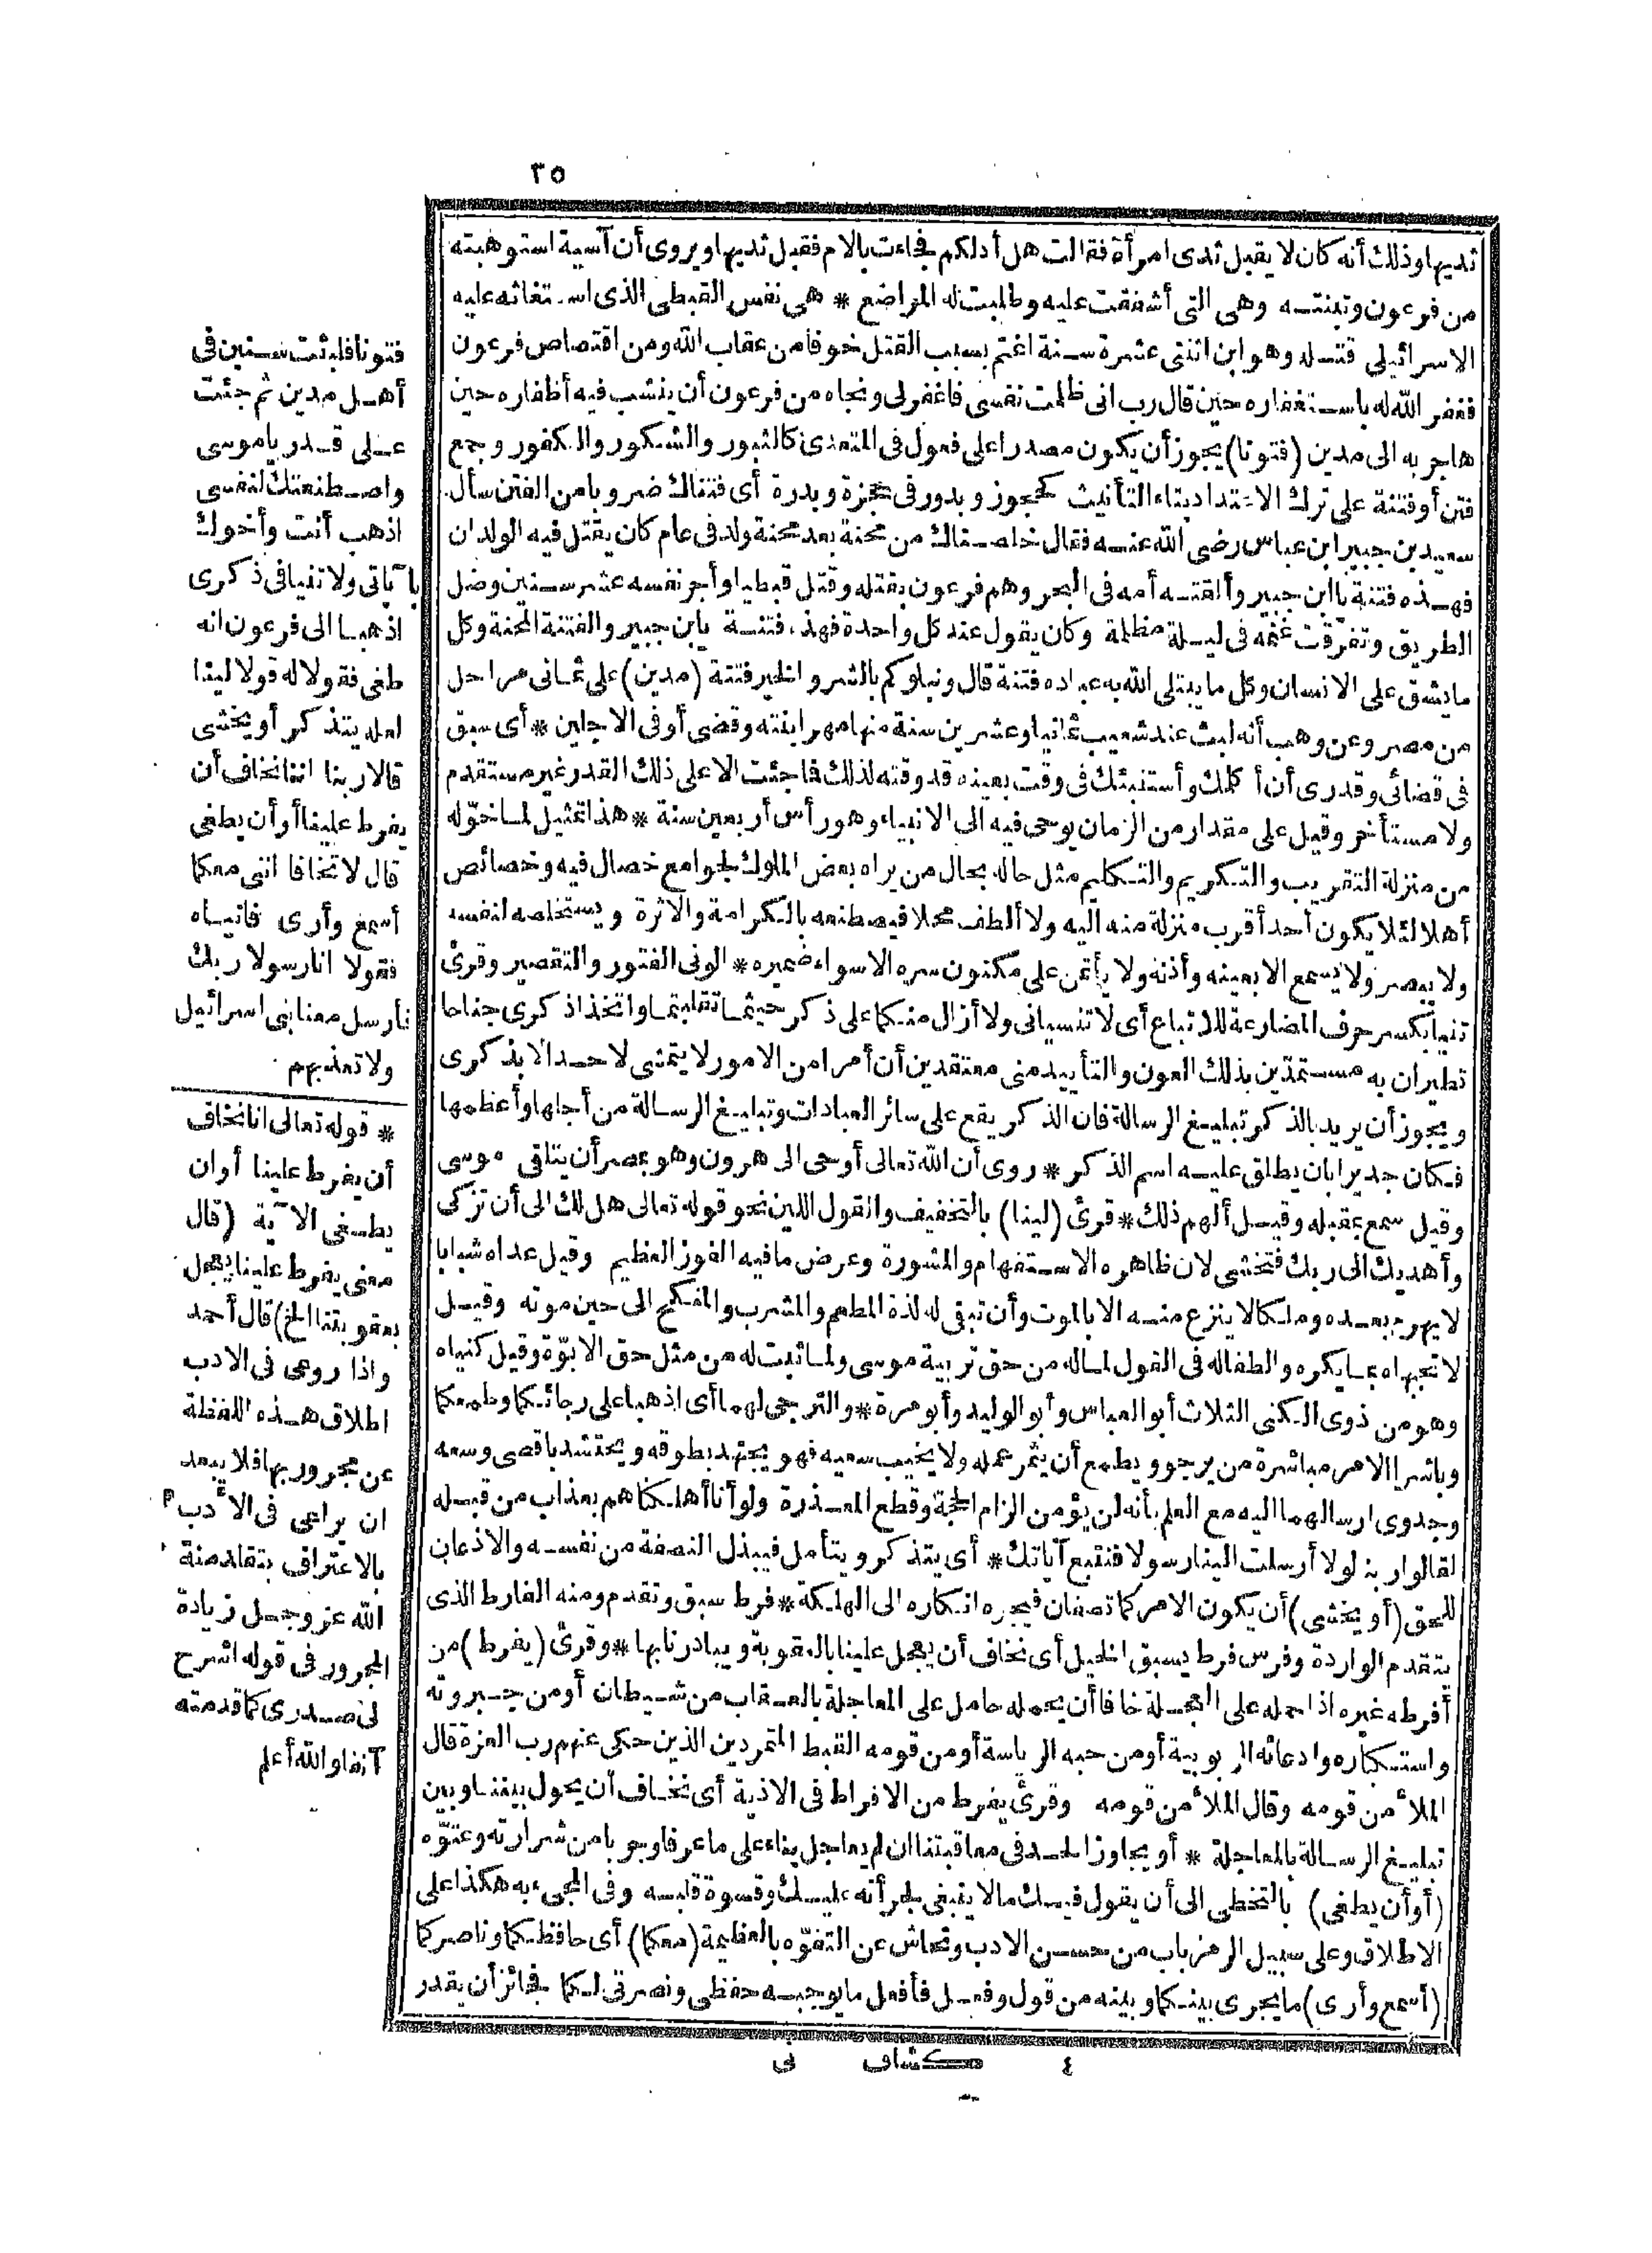 ٢٥
ثديها وذلك أنه كان لا يقبل ثدى امرأة فقالت هل أدلكم فجاءت بالام فقبل ثديها ويروى أن آسية استوهبته
من فرعون وتبنته وهى التى أشفقت عليه وطلبت له المراضع * هى نفس القبطى الذى استغاثه عليه
الاسرائيلى قتله وهو ابن اثنتى عشرة سنة اغتم بسبب القتل خوفا من عقاب الله ومن اقتصاص فرعون
فغفر الله له باستغفاره حين قال رب انى ظلمت نفسى فاغفر لى ونجاه من فرعون أن ينشب فيه أظفاره حين
هاجر به الى مدين (فتونا) يجوز أن يكون مصدرا على فعول فى المتعدى كالثبور والشكور والكفور وجمع
فتن أو فتنة على ترك الاعتداد بتاء التأنيث كحجوز وبدور فى حجزة وبدرة أى فتناك ضروبا من الفتن سأل
سعيد بن جبير ابن عباس رضى الله عنه فقال خلصناك من محنة بعد محنة ولد فى عام كان يقتل فيه الولدان
فهذه فتنة يا ابن جبير وألقته أمه فى البحر وهم فرعون بقتله وقتل قبطيا وأجر نفسه عشر سنين وضل
الطريق وتفرقت غنمه فى ليلة مظلمة وكان يقول عند كل واحدة فهذه فتنة يا بن جبير والفتنة المحنة وكل
ما يشق على الانسان وكل ما يبتلى الله به عباده فتنة قال ونبلوكم بالشر والخير فتنة (مدين) على ثمانى مراحل
من مصر وعن وهب أنه لبث عند شعيب ثمانيا وعشرين سنة منها مهر ابنته وقضى أوفى الاجلين * أى سبق
فى قضائى وقدرى أن أكلمك وأستنبئك فى وقت بعينه قد وقته لذلك فما جئت الا على ذلك القدر غير مستقدم
ولا مستأخر وقيل على مقدار من الزمان يوحى فيه الى الانبياء وهو رأس أربعين سنة * هذا تمثيل لما خوّله
من منزلة التقريب والتكريم والتكليم مثل حاله بحال من يراه بعض الملوك لجوامع خصال فيه وخصائص
أهلا لئلا يكون أحد أقرب منزلة منه اليه ولا ألطف محلا فيصطنعه بالكرامة والاثرة ويستخلصه لنفسه
ولا يبصر ولا يسمع الا بعينه وأذنه ولا يأتمن على مكنون سره الا سواء ضميره * الونى الفتور والتقصير وقرئ
تنيا بكسر حرف المضارعة للاتباع أى لا تنسيانى ولا أزال منكما على ذكر حيثما تقلبتما واتخذا ذكرى جناحا
تطيران به مستمدّين بذلك العون والتأييد منى معتقدين أن أمرا من الامور لا يتمشى لاحد الا بذكرى
ويجوز أن يريد بالذكر تبليغ الرسالة فان الذكر يقع على سائر العبادات وتبليغ الرسالة من أجلها وأعظمها
فكان جديرا بان يطلق عليه اسم الذكر * روى أن الله تعالى أوحى الى هرون وهو بمصر أن يتلقى موسى
وقيل سمع بمقبله وقيل ألهم ذلك * قرئ (لينا) بالتخفيف والقول اللين نحو قوله تعالى هل لك الى أن تزكى
وأهديك الى ربك فتخشى لان ظاهره الاستفهام والمشورة وعرض ما فيه الفوز العظيم وقيل عداه شبابا
لا يهرم بعده وملكا لا ينزع منه الا بالموت وأن تبقى له لذة المطعم والمشرب والمنكح الى حين موته وقيل
لا تجبهاه بما يكره والطفا له فى القول لما له من حق تربية موسى ولما ثبت له من مثل حق الابوّة وقيل كنياه
وهو من ذوى الكنى الثلاث أبو العباس وأبو الوليد وأبو مرة * والترجى لهما أى اذهبا على رجائكما وطمعكما
وباشرا الامر مباشرة من يرجو ويطمع أن يثمر عمله ولا يخيب سعيه فهو يجتهد بطوقه ويحتشد باقصى وسعه
وجدوى ارسالهما اليه مع العلم بأنه لن يؤمن الزام الحجة وقطع المعذرة ولو أنا أهلكناهم بعذاب من قبله
لقالوا ربنا لولا أرسلت الينا رسولا فنتبع آياتك * أى يتذكر ويتأمل فيبذل النصفة من نفسه والاذعان
للحق (أو يخشى) أن يكون الامر كما تصفان فيجره انكاره الى الهلكة * فرط سبق وتقدم ومنه الفارط الذى
يتقدم الواردة وفرس فرط يسبق الخيل أى نخاف أن يعجل علينا بالعقوبة ويبادرنا بها * وقرئ (يفرط) من
أفرطه غيره اذا حمله على العجلة خافا أن يحمله حامل على المعاجلة بالعقاب من شيطان أو من جبروته
واستكباره وادعائه الربوبية أو من حبه الرياسة أو من قومه القبط المتمردين الذين حكى عنهم رب العزة قال
الملأ من قومه وقال الملأ من قومه وقرئ يفرط من الافراط فى الاذية أى نخاف أن يحول بيننا وبين
تبليغ الرسالة بالمعاجلة * أو يجاوز الحد فى معاقبتنا ان لم يعاجل بناء على ما عرفا وجربا من شرارته وعتوّه
(أو أن يطغى) بالتخطى الى أن يقول فيك ما لا ينبغى لجرأته عليك وقسوة قلبه وفى المجىء به هكذا على
الاطلاق وعلى سبيل الرمز باب من حسن الادب وتحاش عن التفوّه بالعظيمة (معكما) أى حافظكما وناصركما
(أسمع وأرى) ما يجرى بينكما وبينه من قول وفعل فأفعل ما يوجبه حفظى ونصرتى لكما فجائز أن يقدر
فتونا فلبثت سنين فى
أهل مدين ثم جئت
على قدر ياموسى
واصطنعتك لنفسى
اذهب أنت وأخوك
بآياتى ولا تنيا فى ذكرى
اذهبا الى فرعون انه
طغى فقولا له قولا لينا
لعله يتذكر أو يخشى
قالا ربنا اننا نخاف أن
يفرط علينا أو أن يطغى
قال لا تخافا اننى معكما
أسمع وأرى فاتياه
فقولا انا رسولا ربك
فأرسل معنا بنى اسرائيل
ولا تعذبهم
* قوله تعالى اننا نخاف
أن يفرط علينا أوان
يطغى الآية (قال
معنى يفرط علينا يعجل
بعقوبتنا الخ) قال أحمد
واذا روعى فى الادب
اطلاق هذه اللفظة
عن مجرور بها فلا يبعد
ان يراعى فى الادب
بالاعتراف بتقلد منة
الله عز وجل زيادة
المجرور فى قوله اشرح
لى صدرى كما قدمته
آنفا والله أعلم
٤ كشاف نى